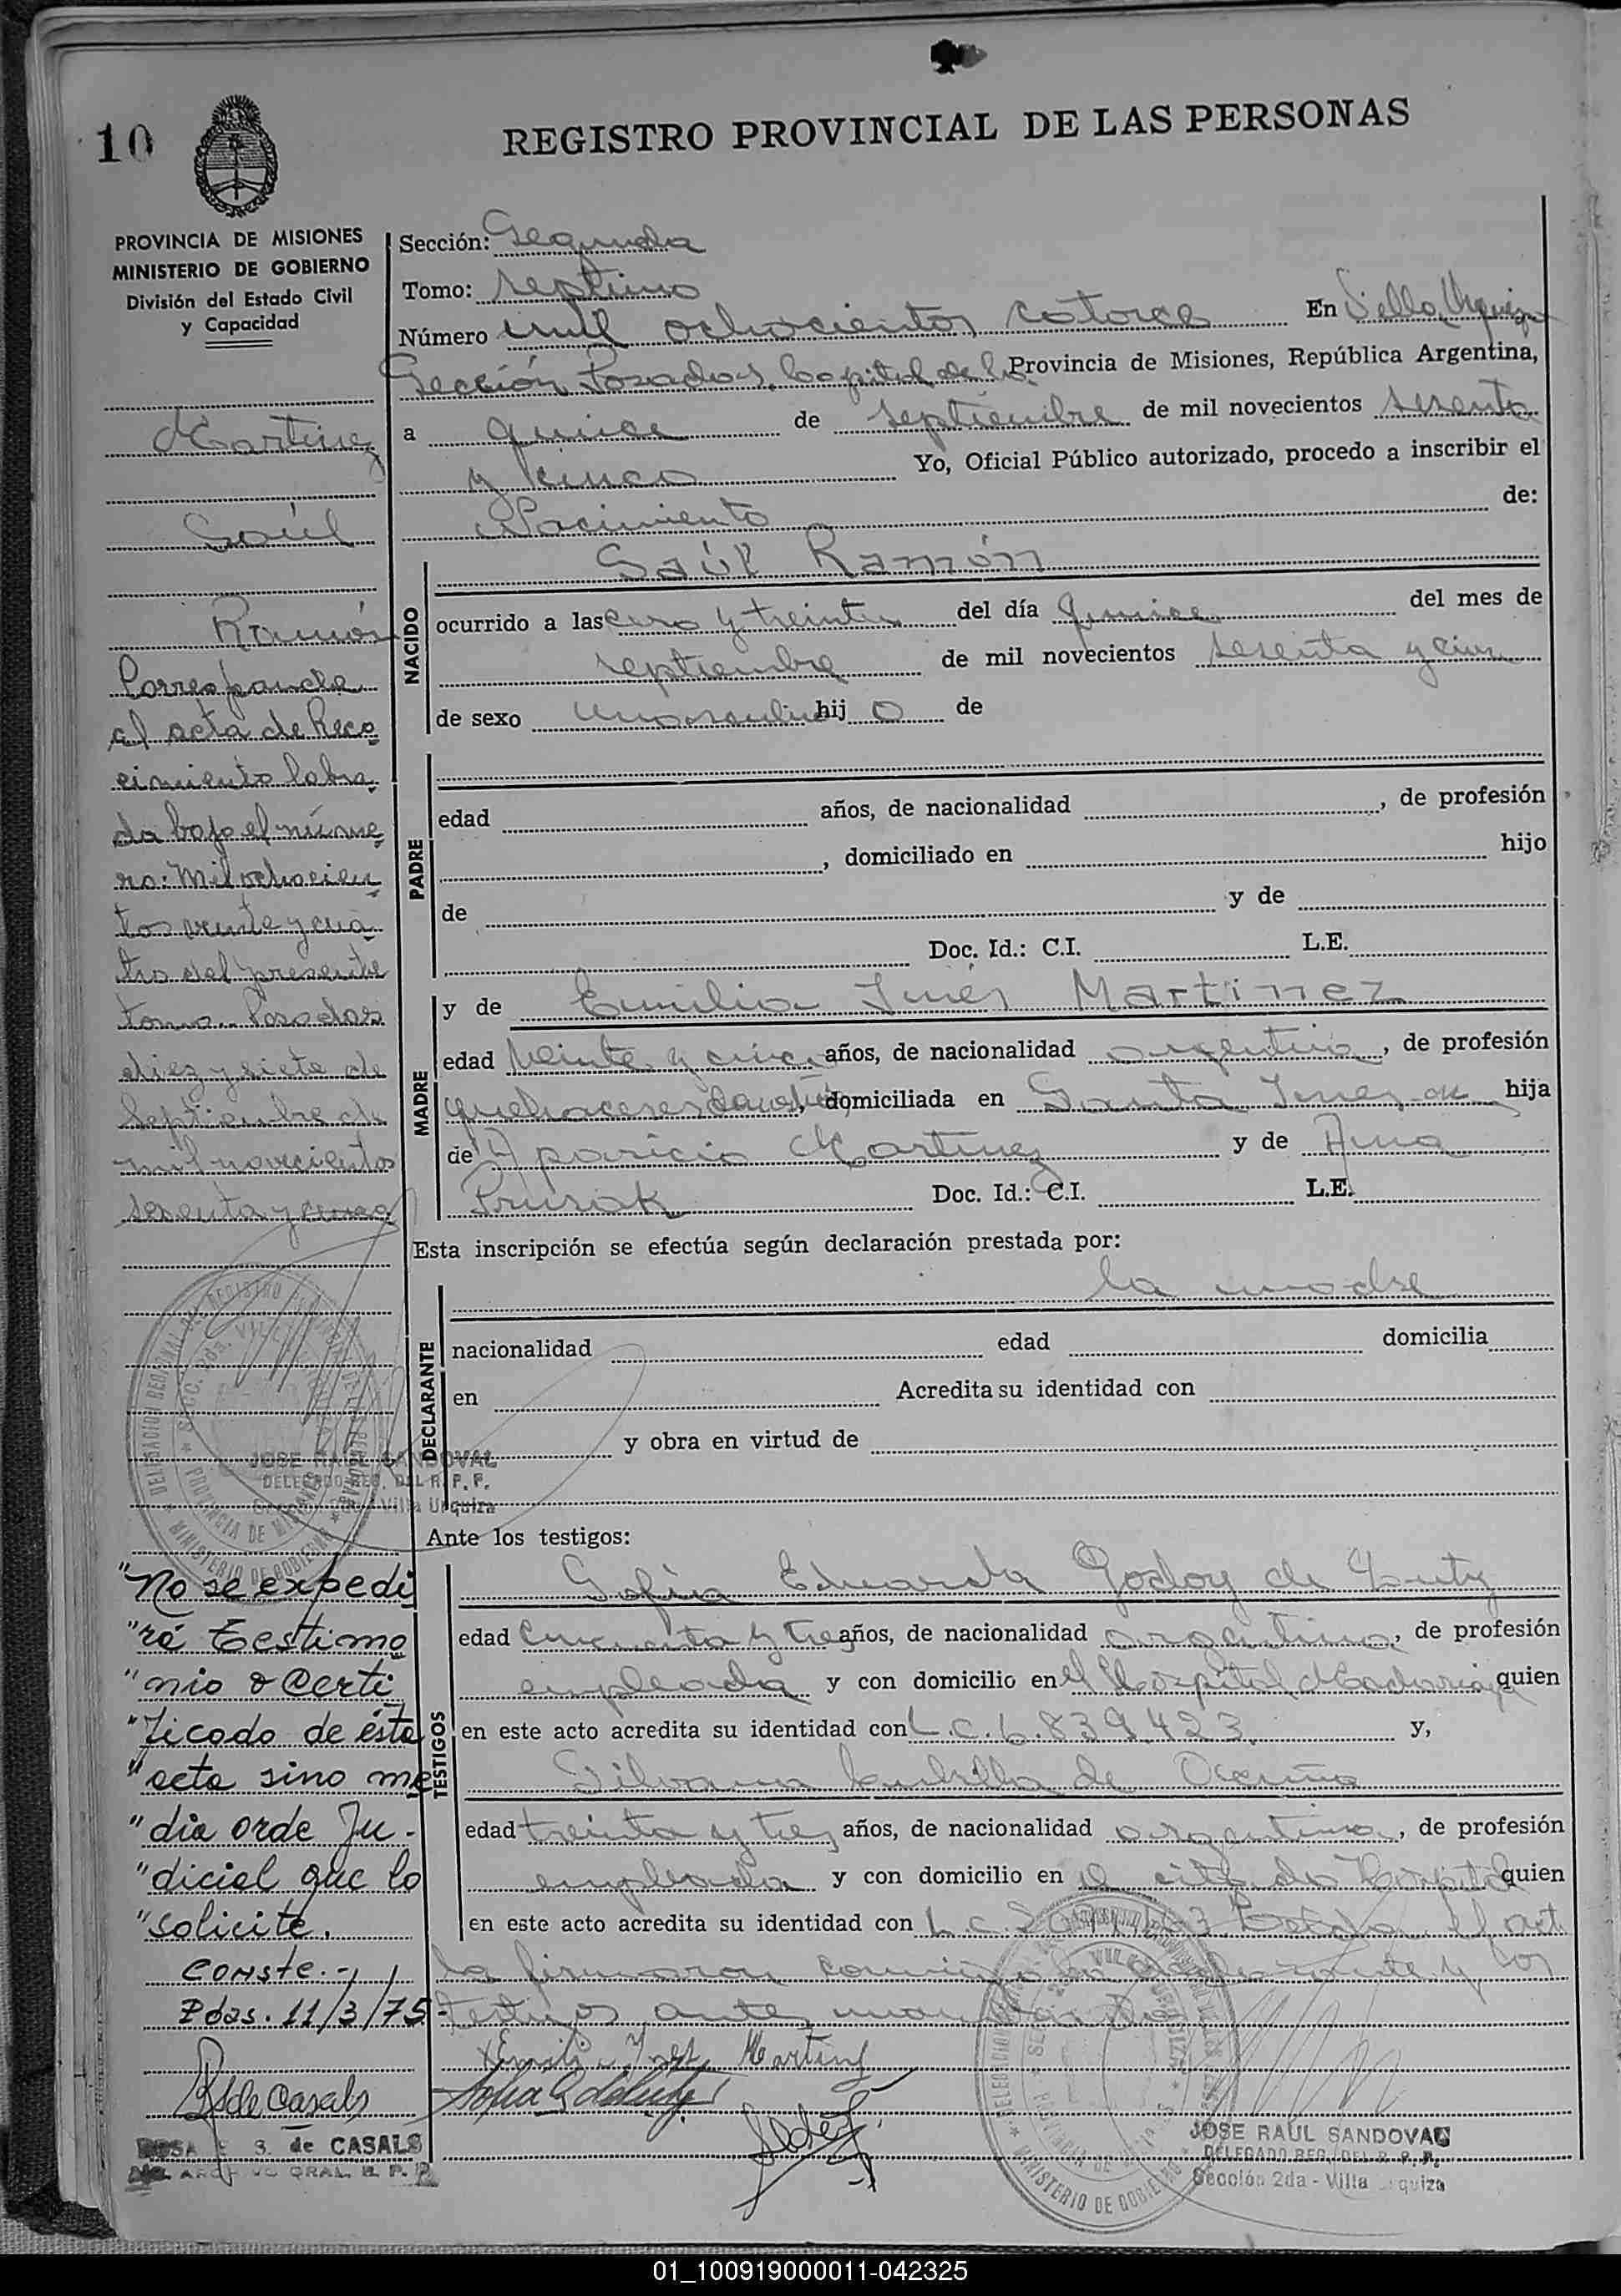 10
REGISTRO PROVINCIAL DE LAS PERSONAS
PROVINCIA DE MISIONES
MINISTERIO DE GOBIERNO
División del Estado Civil
y Capacidad
Martinez
Saúl
Ramón
Corresponde
al acta de Reco
cimiento labra
da bajo el núme
ro: Mil ochocien
tos veinte y cua
tro del presente
tomo. Posadas
diez y siete de
Septiembre de
mil novecientos
sesenta y cinco
JOSE RAUL SANDOVAL
DELEGADO REG. DEL R. P. P.
Sección 2da - Villa Urquiza
"No se expedi
"rá Testimo
"nio o Certi
"ficado de ésta
"acta sino me
"dia orde Ju-
"dicial que lo
"solicite.
Conste.-
Pdas. 11/3/75-
de Casals
ROSA E. S. de CASALS
Sección: Segunda
Tomo: septimo
Número mil ochocientos catorce En Villa Urquiza
Sección Posadas, Capital de la Provincia de Misiones, República Argentina,
a quince de septiembre de mil novecientos sesenta
y cinco Yo, Oficial Público autorizado, procedo a inscribir el
Nacimiento de:
NACIDO
Saúl Ramón
ocurrido a las cero y treinta del día quince del mes de
septiembre de mil novecientos sesenta y cinco
de sexo masculino hij o de
PADRE
edad años, de nacionalidad , de profesión
, domiciliado en hijo
de y de
Doc. Id.: C.I. L.E.
MADRE
y de Emilia Inés Martinez
edad veinte y cinco años, de nacionalidad argentina, de profesión
quehaceres domésticos, domiciliada en Santa Ines de hija
de Aparicio Martinez y de Ana
Prusak Doc. Id.: C.I. L.E.
Esta inscripción se efectúa según declaración prestada por:
DECLARANTE
la madre
nacionalidad edad domicilia
en Acredita su identidad con
y obra en virtud de
Ante los testigos:
TESTIGOS
Sofia Eduarda Godoy de
edad cincuenta y tres años, de nacionalidad argentina, de profesión
empleada y con domicilio en el Hospital Madariaga quien
en este acto acredita su identidad con L.C. 6.839.423. y,
Silvana de
edad treinta y tres años, de nacionalidad argentina, de profesión
empleada y con domicilio en el citado Hospital quien
en este acto acredita su identidad con L.C.
la firmaron conmigo la declarante y los
testigos ante
Emilia Ines Martinez
JOSE RAUL SANDOVAL
DELEGADO REG. DEL R. P. P.
Sección 2da - Villa Urquiza
01_100919000011-042325